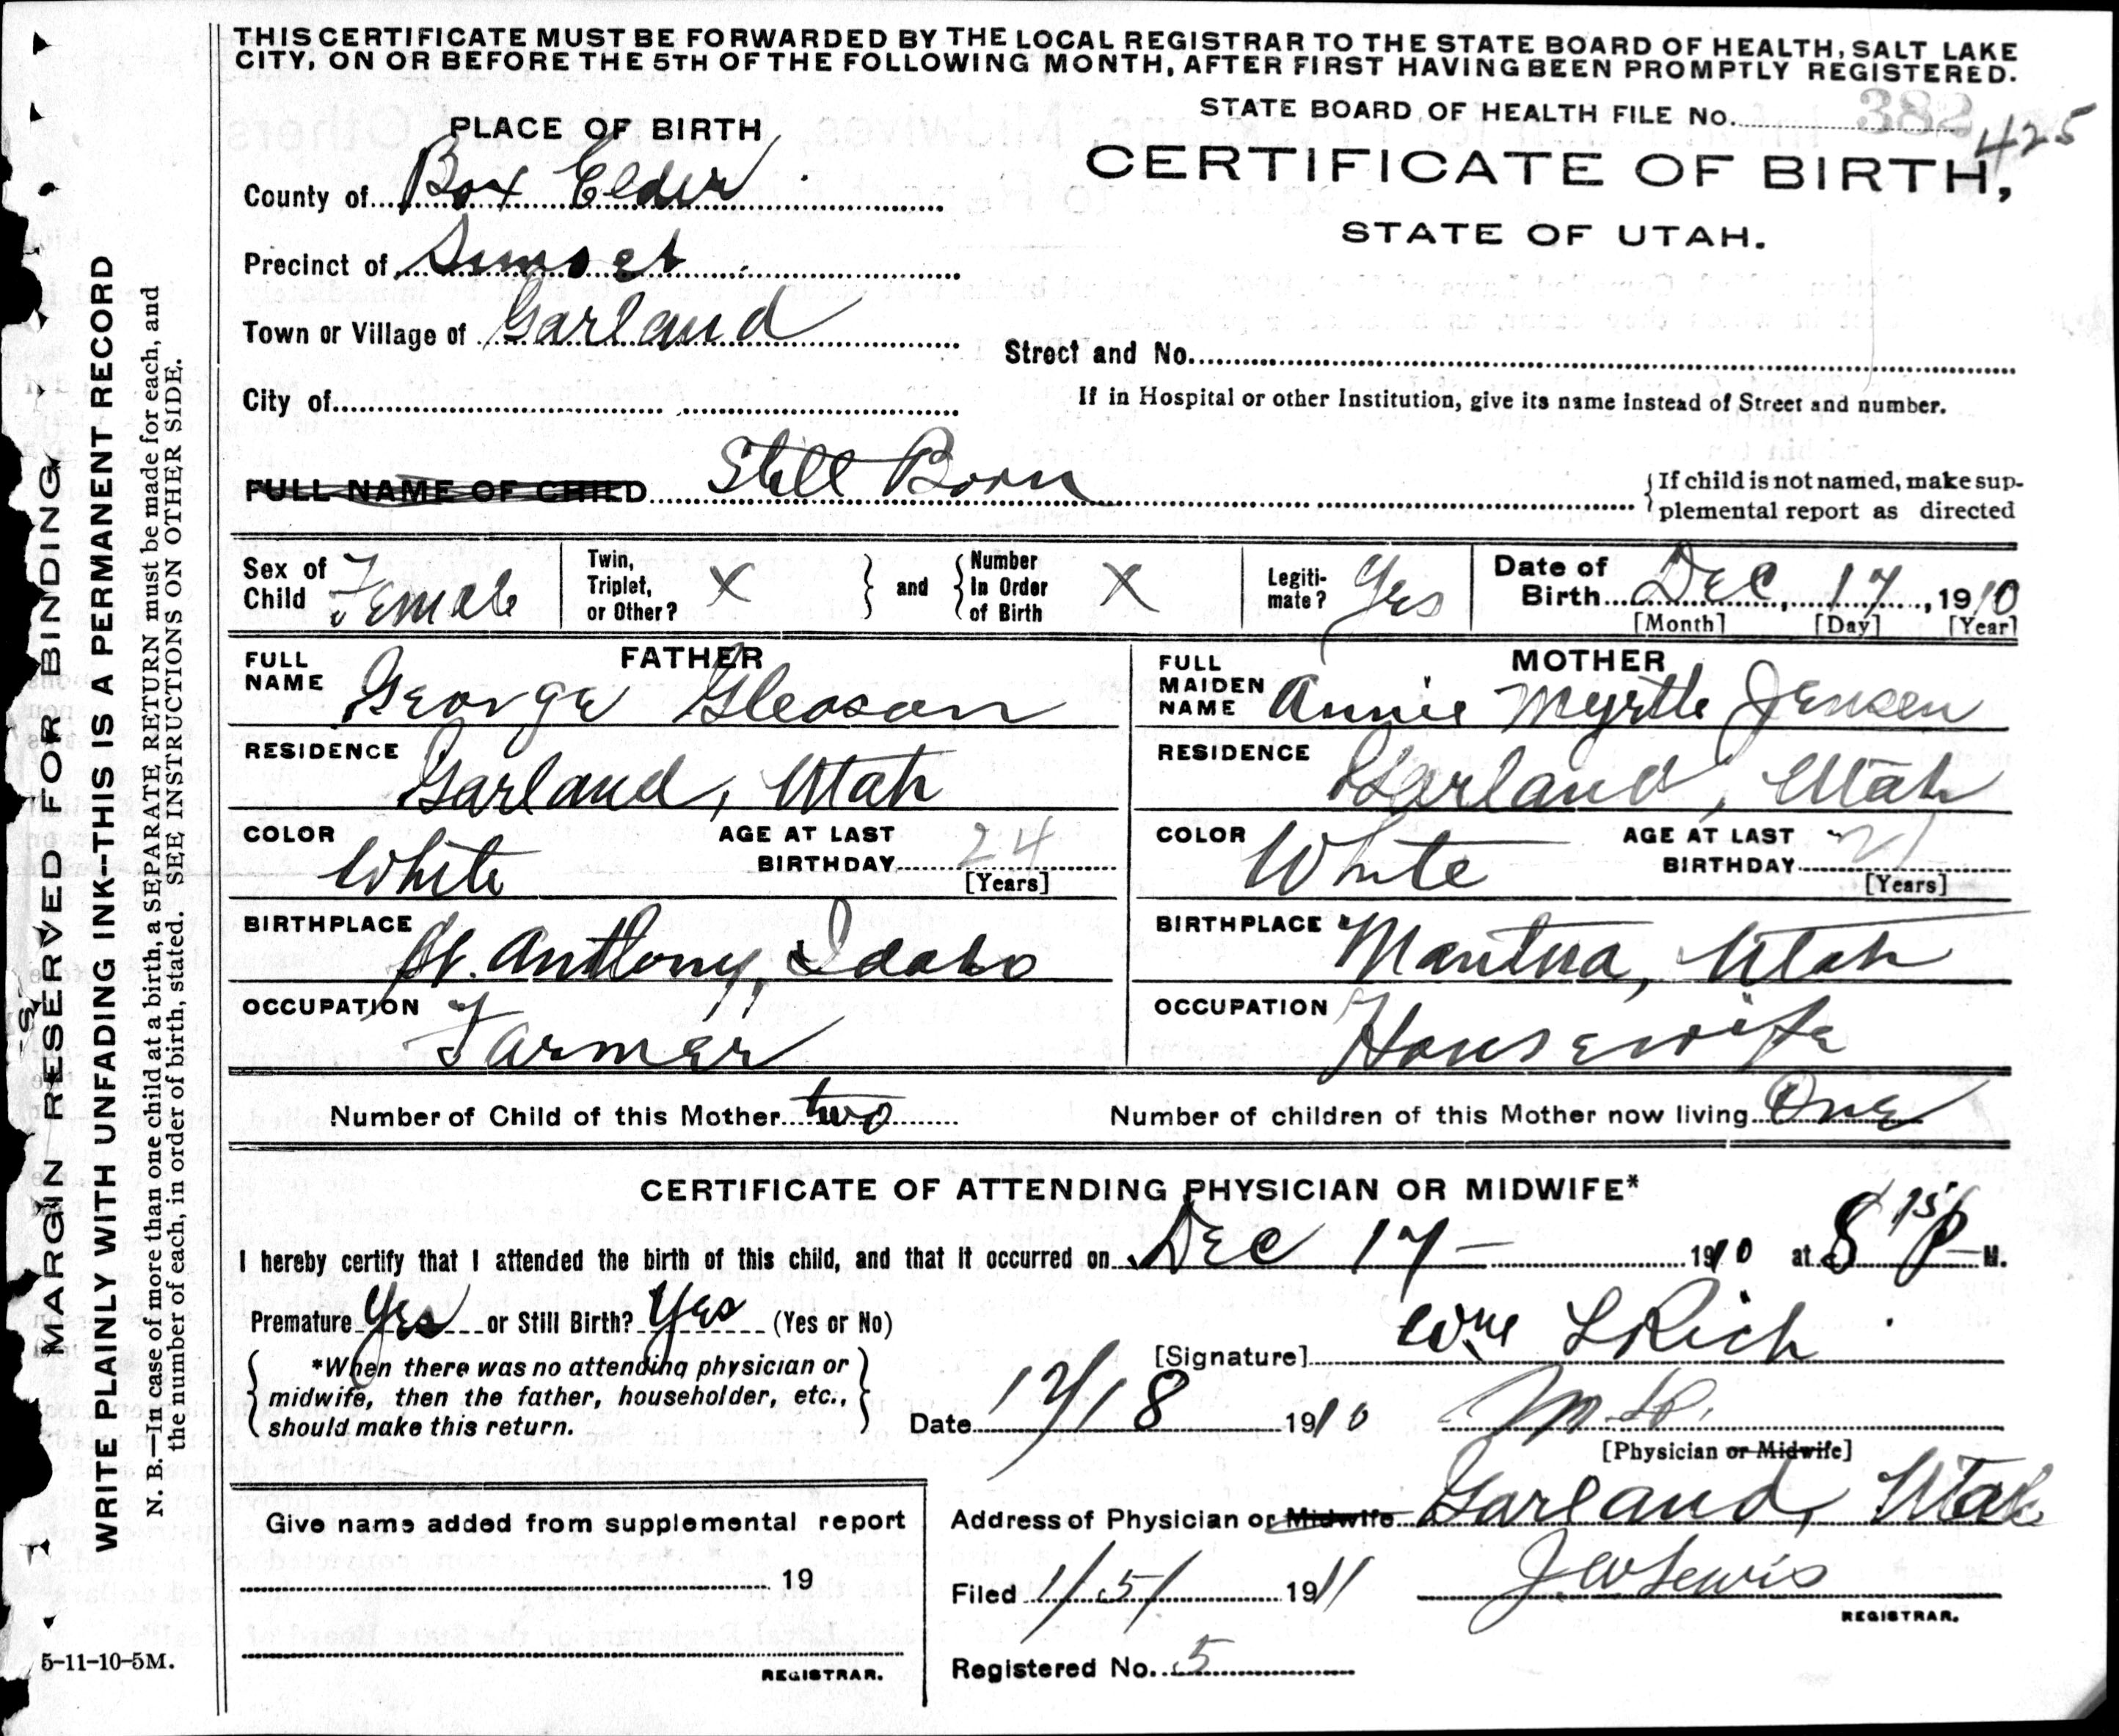 THIS CERTIFICATE MUST BE FORWARDED BY THE LOCAL REGISTRAR TO THE STATE BOARD OF HEALTH, SALT LAKE
CITY, ON OR BEFORE THE 5TH OF THE FOLLOWING MONTH, AFTER FIRST HAVING BEEN PROMPTLY REGISTERED.
STATE BOARD OF HEALTH FILE No. 382 425
PLACE OF BIRTH
CERTIFICATE OF BIRTH,
STATE OF UTAH.
County of Box Elder
Precinct of Sunset
Town or Village of Garland
Street and No.
City of
If in Hospital or other Institution, give its name instead of Street and number.
FULL NAME OF CHILD Still Born
{If child is not named, make sup-
plemental report as directed
Sex of Child Female
Twin, Triplet, or Other? X } and { Number In Order of Birth X
Legiti-mate? Yes
Date of Birth Dec, 17, 1910
[Month] [Day] [Year]
FATHER
FULL NAME George Gleason
RESIDENCE Garland, Utah
COLOR White AGE AT LAST BIRTHDAY 24 [Years]
BIRTHPLACE St. Anthony, Idaho
OCCUPATION Farmer
MOTHER
FULL MAIDEN NAME Annie Myrtle Jensen
RESIDENCE Garland, Utah
COLOR White AGE AT LAST BIRTHDAY 21 [Years]
BIRTHPLACE Mantua, Utah
OCCUPATION Housewife
Number of Child of this Mother two
Number of children of this Mother now living One
CERTIFICATE OF ATTENDING PHYSICIAN OR MIDWIFE*
I hereby certify that I attended the birth of this child, and that it occurred on Dec 17 — 1910 at 8 15 P M.
Premature Yes or Still Birth? Yes (Yes or No)
[Signature] Wm L Rich
*When there was no attending physician or
midwife, then the father, householder, etc.,
should make this return.
Date 12/18 1910 M.D.
[Physician or Midwife]
Address of Physician or Midwife Garland, Utah
Filed 1/5/ 1911 J. W. Lewis
REGISTRAR.
Registered No. 5
Give name added from supplemental report
19
REGISTRAR.
MARGIN RESERVED FOR BINDING
WRITE PLAINLY WITH UNFADING INK--THIS IS A PERMANENT RECORD
N. B.—In case of more than one child at a birth, a SEPARATE RETURN must be made for each, and
the number of each, in order of birth, stated. SEE INSTRUCTIONS ON OTHER SIDE.
5-11-10-5M.